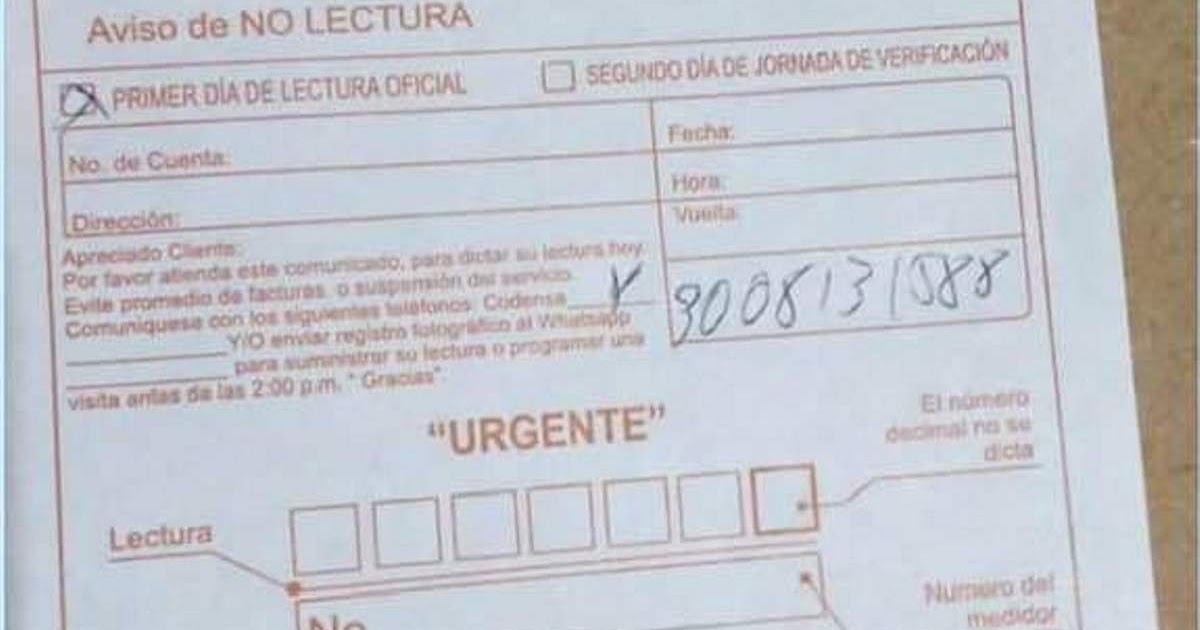 Aviso de NO LECTURA
PRIMER DÍA DE LECTURA OFICIAL
SEGUNDO DÍA DE JORNADA DE VERIFICACIÓN
No. de Cuenta:
Fecha:
Hora:
Dirección:
Vuelta:
Apreciado Cliente:
Por favor atienda este comunicado, para dictar su lectura hoy.
Evite promedio de facturas, o suspensión del servicio.
Comuníquese con los siguientes teléfonos: Codensa
Y/O enviar registro fotográfico al Whatsapp
para suministrar su lectura o programar una
visita antes de las 2:00 p.m. " Gracias".
3008131588
"URGENTE"
El número
decimal no se
dicta
Lectura
No
Numero del
medidor